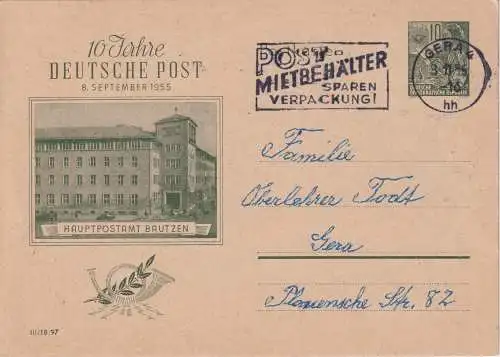 10 Jahre
DEUTSCHE POST
8. SEPTEMBER 1955
HAUPTPOSTAMT BAUTZEN
III/18/97
POST
MIETBEHÄLTER
SPAREN
VERPACKUNG!
10
GERA 4
hh
Familie
Oberlehrer Todt
Gera
Str. 82